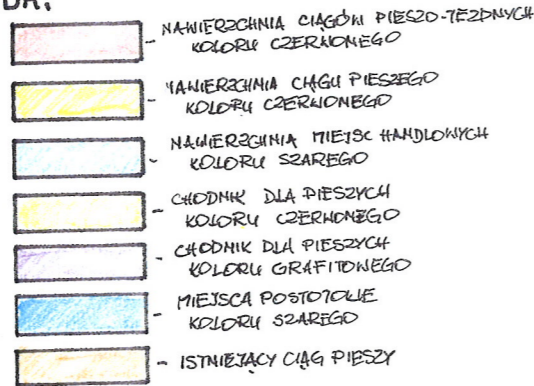 DA:
- NAWIERZCHNIA CIĄGÓW PIESZO-JEZDNYCH
KOLORU CZERWONEGO
- NAWIERZCHNIA CIĄGU PIESZEGO
KOLORU CZERWONEGO
- NAWIERZCHNIA MIEJSC HANDLOWYCH
KOLORU SZAREGO
- CHODNIK DLA PIESZYCH
KOLORU CZERWONEGO
- CHODNIK DLA PIESZYCH
KOLORU GRAFITOWEGO
- MIEJSCA POSTOJOWE
KOLORU SZAREGO
- ISTNIEJĄCY CIĄG PIESZY